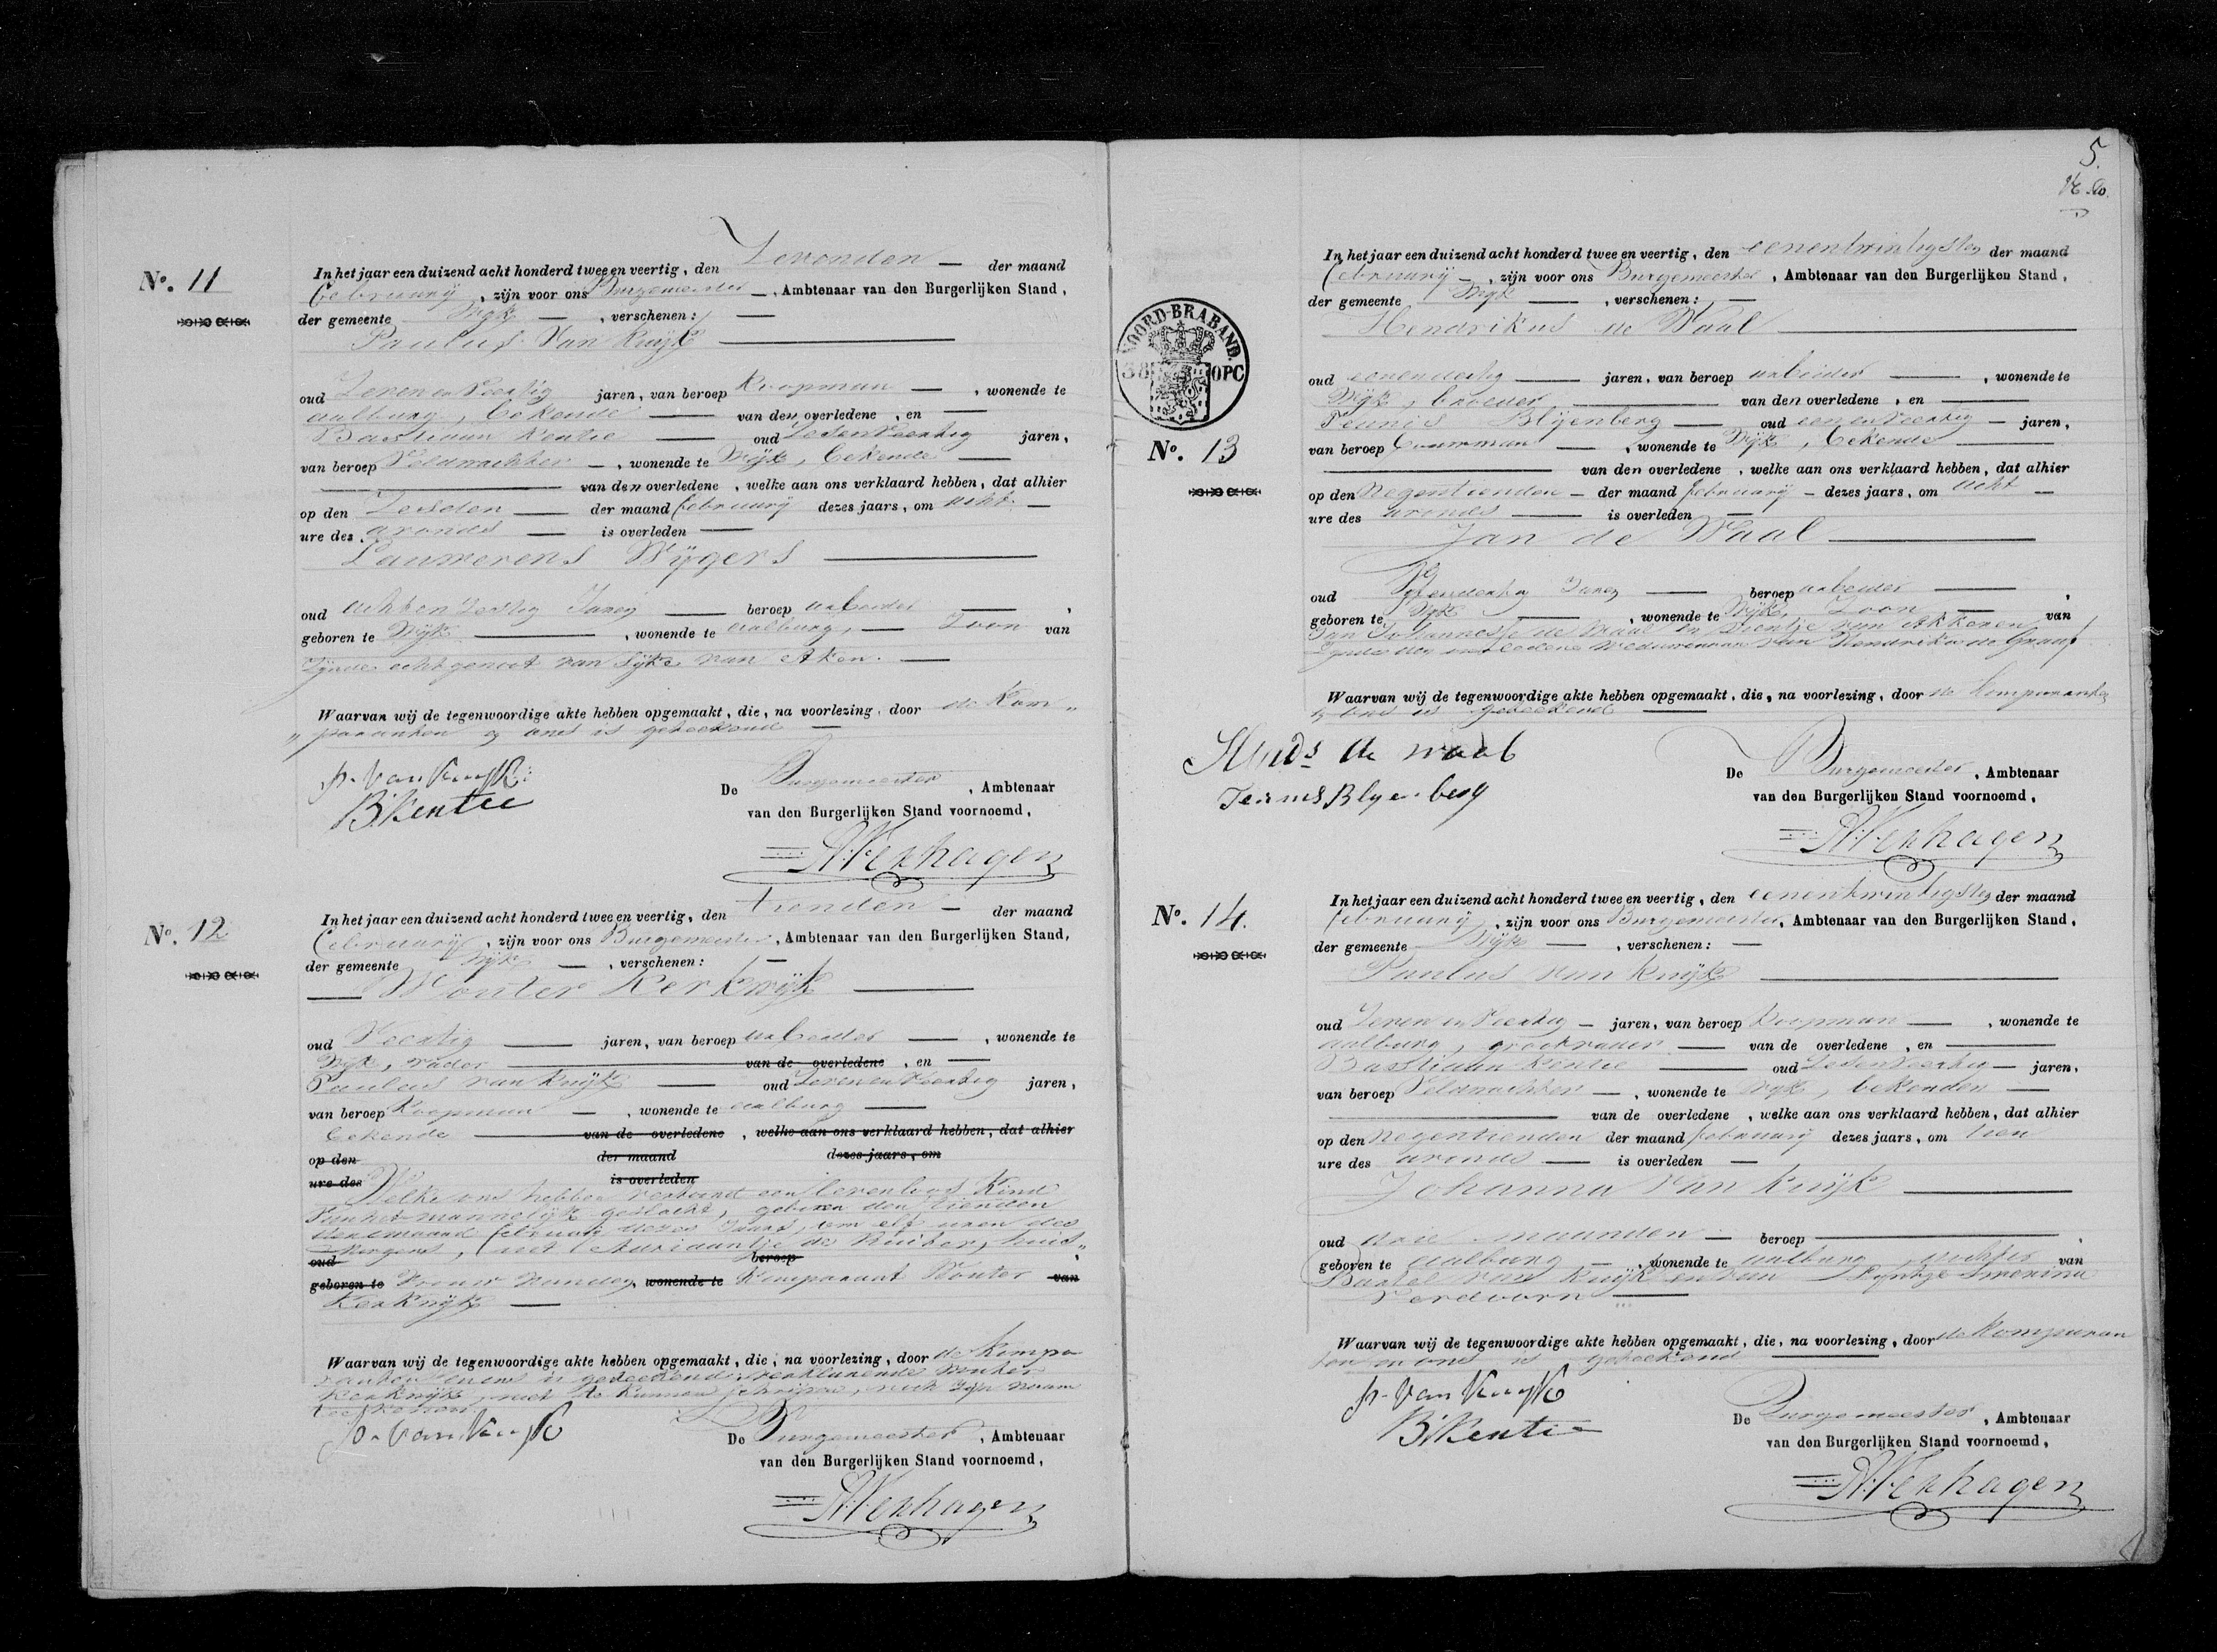 No. 11
In het jaar een duizend acht honderd twee en veertig, den Zevenden — der maand
february, zijn voor ons Burgemeester —, Ambtenaar van den Burgerlijken Stand,
der gemeente Wijk —, verschenen: —
Paulus Van Kuijk —
oud Zeven en Veertig jaren, van beroep Koopman —, wonende te
aalburg, bekende — van den overledene, en —
Bastiaan Kentie — oud Zesenveertig jaren,
van beroep Veldwachter —, wonende te Wijk, bekende —
— van den overledene, welke aan ons verklaard hebben, dat alhier
op den Zesden — der maand february dezes jaars, om acht —
ure des avonds — is overleden —
Lauwerens Wijgers —
oud achtenzestig Jaren — beroep arbeider —,
geboren te Wijk —, wonende te aalburg, — Zoon van
Zijnde echtgenoot van Sijke van Aken. —
Waarvan wij de tegenwoordige akte hebben opgemaakt, die, na voorlezing, door de Kom„
„paranten en ons is geteekend —
P. Van Kuijk
B. Kentie
De Burgemeester, Ambtenaar
van den Burgerlijken Stand voornoemd,
Verhagen
No. 12
In het jaar een duizend acht honderd twee en veertig, den tienden — der maand
february, zijn voor ons Burgemeester, Ambtenaar van den Burgerlijken Stand,
der gemeente Wijk —, verschenen: —
— Wouter Kerkwijk —
oud Veertig — jaren, van beroep arbeider —, wonende te
Wijk, vader — van de overledene, en —
Paulus van Kuijk — oud Zevenenveertig jaren,
van beroep Koopman —, wonende te aalburg —
bekende — van de overledene, welke aan ons verklaard hebben, dat alhier
op den der maand dezes jaars, om
ure des is overleden
Welke ons hebben vertoond een levenloos Kind
Van het mannelijk geslacht, geboren den tienden
der maand february dezes Jaars, om elf uren des
Morgens, uit Adriaantje de Ruiter, huis„
oud beroep,
geboren te Vrouw van den, wonende te Komparant Wouter van
Kerkwijk —
Waarvan wij de tegenwoordige akte hebben opgemaakt, die, na voorlezing, door de Kompa
ranten en ons is geteekend, verklarende Wouter
Kerkwijk, niet te kunnen schrijven, noch zijn naam
teekenen.
P. Van Kuijk
De Burgemeester, Ambtenaar
van den Burgerlijken Stand voornoemd,
Verhagen
5.
NOORD-BRABAND.
38 OPC
No. 13
In het jaar een duizend acht honderd twee en veertig, den eenentwintigsten der maand
february —, zijn voor ons Burgemeester, Ambtenaar van den Burgerlijken Stand,
der gemeente Wijk —, verschenen: —
Hendrikus de Waal —
oud eenendertig — jaren, van beroep arbeider —, wonende te
Wijk, broeder — van den overledene, en —
Teunis Blijenberg — oud eenenveertig — jaren,
van beroep bouwman —, wonende te Wijk, bekende —
— van den overledene, welke aan ons verklaard hebben, dat alhier
op den Negentienden — der maand february — dezes jaars, om acht —
ure des avonds — is overleden —
Jan de Waal —
oud Jaren — beroep arbeider —,
geboren te Wijk —, wonende te Wijk, Zoon — van
Jan Johannesse de Waal en van Akkeren
Zijnde den overledene Weduwenaar van Hendrika de Graaf
Waarvan wij de tegenwoordige akte hebben opgemaakt, die, na voorlezing, door de komparanten
en ons is geteekend —
Hends de waal
Teunis Blyenberg
De Burgemeester, Ambtenaar
van den Burgerlijken Stand voornoemd,
Verhagen
No. 14.
In het jaar een duizend acht honderd twee en veertig, den eenentwintigsten der maand
february, zijn voor ons Burgemeester, Ambtenaar van den Burgerlijken Stand,
der gemeente Wijk —, verschenen: —
Paulus van Kuijk —
oud Zeven en Veertig — jaren, van beroep Koopman —, wonende te
aalburg, grootvader — van de overledene, en —
Bastiaan Kentie — oud Zesenveertig — jaren,
van beroep Veldwachter —, wonende te Wijk, bekenden —
— van de overledene, welke aan ons verklaard hebben, dat alhier
op den Negentienden der maand february dezes jaars, om tien
ure des avonds — is overleden —
Johanna van Kuijk —
oud maanden — beroep —,
geboren te aalburg —, wonende te aalburg, dochter van
Bastel van Kuijk en van Smerina
Verdoorn —
Waarvan wij de tegenwoordige akte hebben opgemaakt, die, na voorlezing, door de Komparan
ten en ons is geteekend —
P. Van Kuijk
B. Kentie
De Burgemeester, Ambtenaar
van den Burgerlijken Stand voornoemd,
Verhagen